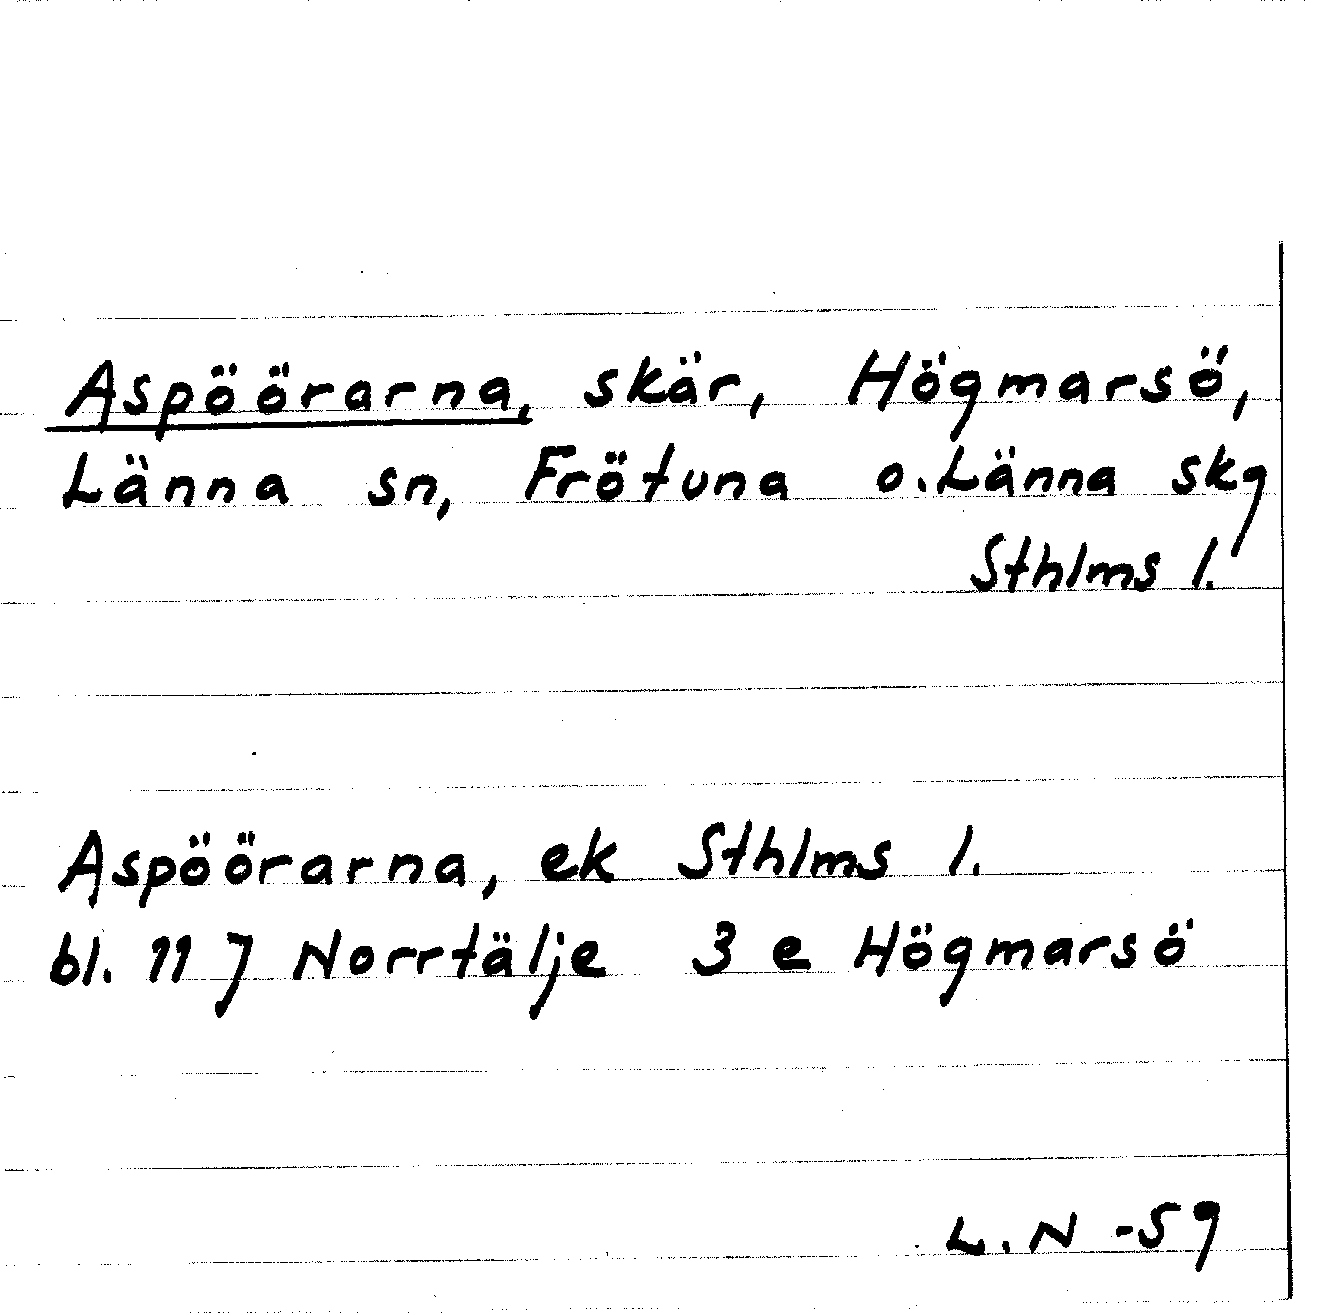 Aspöörarna, skär, Högmarsö,
Länna sn, Frötuna o. Länna skg
Sthlms l.
Aspöörarna, ek Sthlms l.
bl. 11 J Norrtälje 3 e Högmarsö
L. N -59